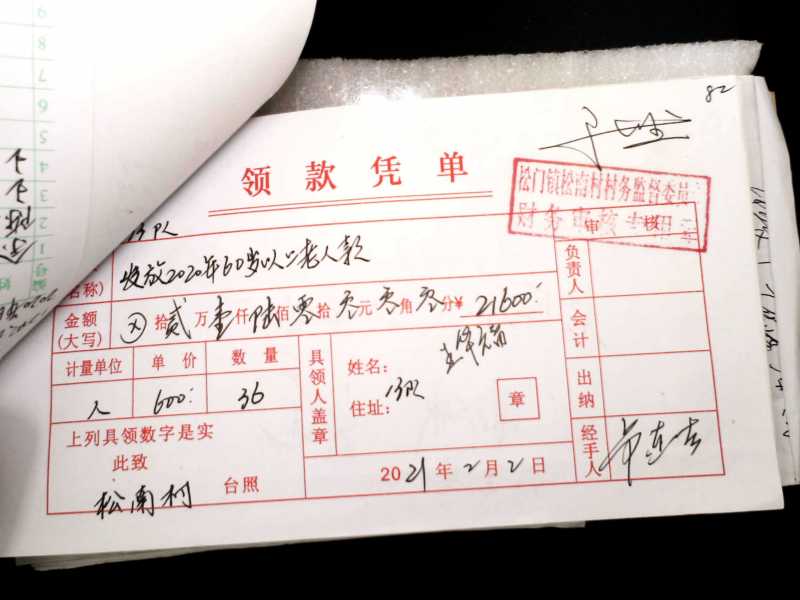 82
领款凭单
松门镇松南村村务监督委员
财务审核专用
审核
13队
名称)
发放2020年60岁以上老人款
负责人
金额
(大写)
⊗拾贰万壹仟陆佰零拾零元零角零分¥21600
会计
计量单位 单价 数量
人 600 36
具领人盖章
姓名:
住址: 13队
章
出纳
上列具领数字是实
此致
松南村 台照
2021年2月2日
经手人
9
8
7
6
5
4
3
2
1
编号